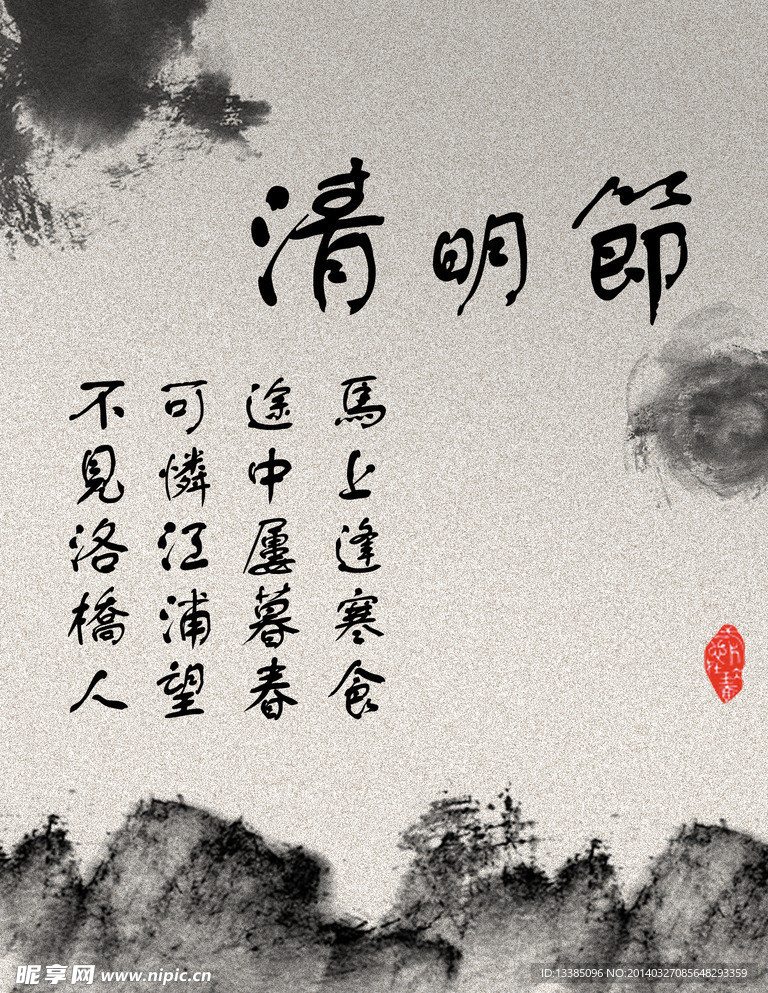 清明節
馬上逢寒食
途中屢暮春
可憐江浦望
不見洛橋人
昵享网 www.nipic.cn
ID:13385096 NO:20140327085648293359